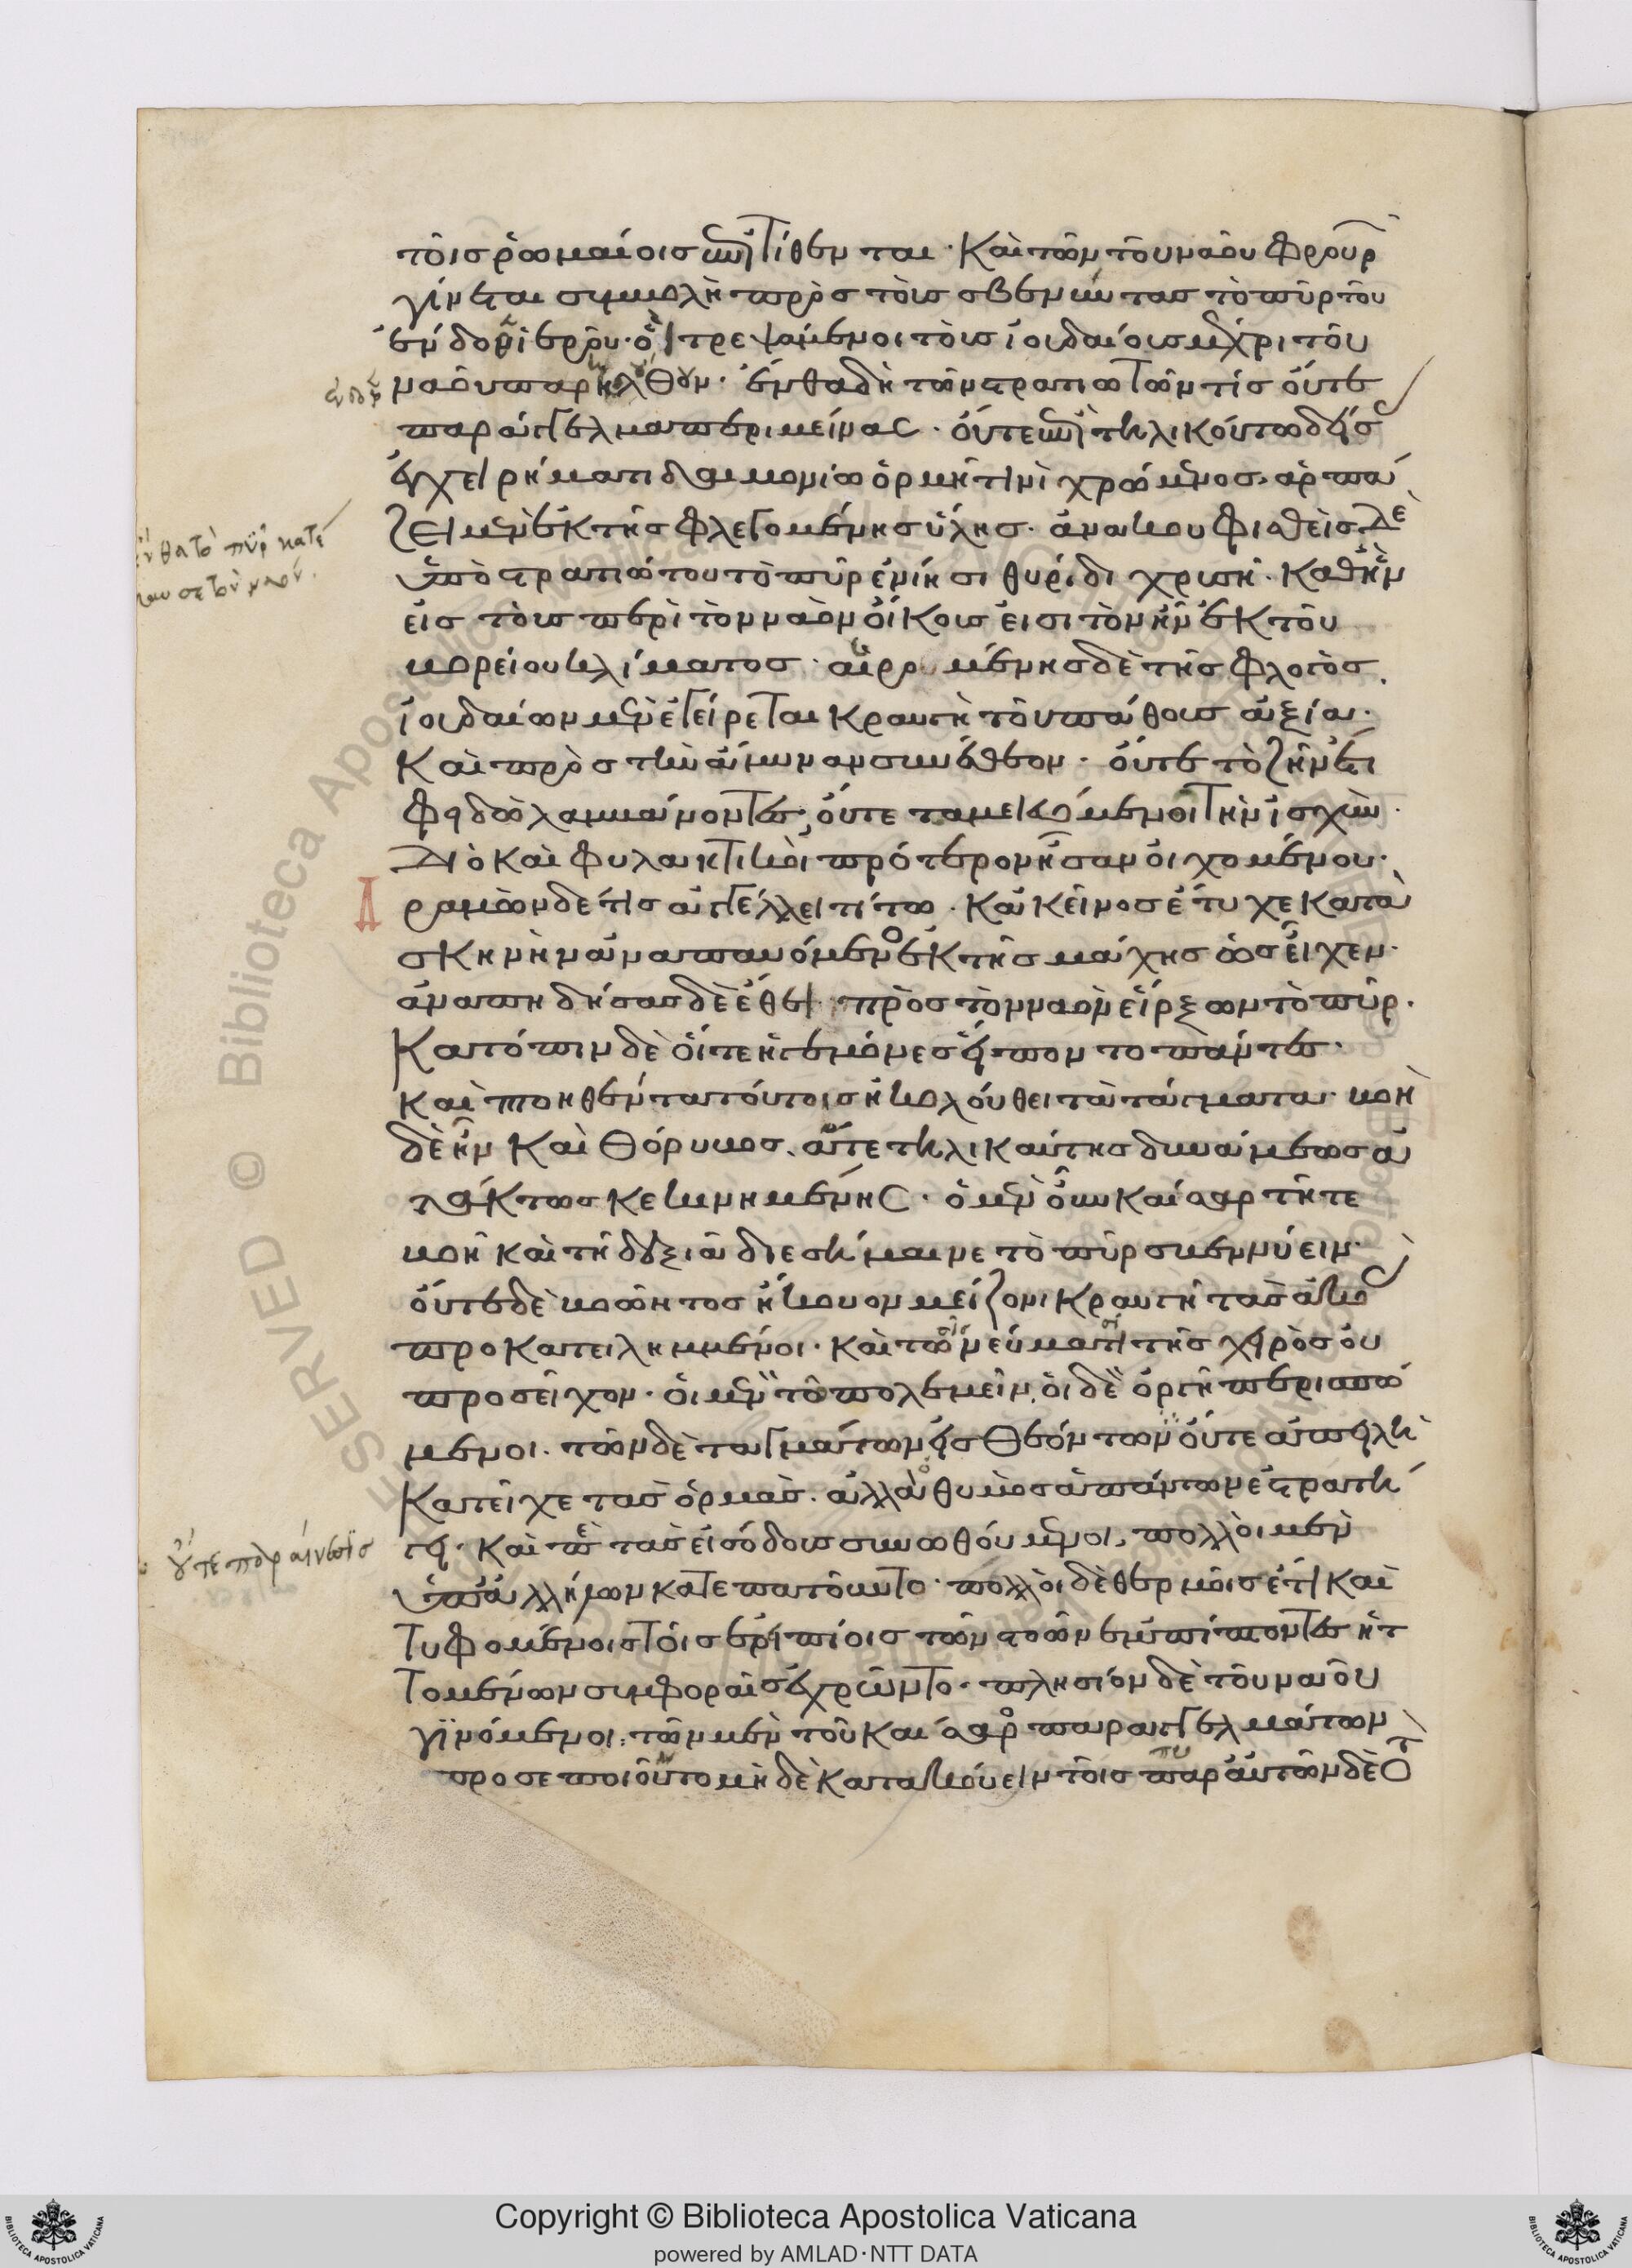 τοῖς ῥωμαίοις ἐπιτίθενται· καὶ τῶν τοῦ ναοῦ φρουρ
γίνεται συμβολὴ πρὸς τοὺς σβεννύντας τὸ πῦρ τοῦ
ἔνδοθεν ἱεροῦ· οἳ τρεψάμενοι τοὺς ἰουδαίους μέχρι τοῦ
ναοῦ παρηκολούθουν· ἔνθα δὴ τῶν στρατιωτῶν τίς οὔτε
παράγγελμα περιμείνας· οὔτε ἐπὶ τηλικούτω δείσ
ἐγχειρήματι δαιμονίω ὁρμῆ τινὶ χρώμενος. ἁρπά
ζει μὲν ἐκ τῆς φλεγομένης ὕλης· ἀνακουφισθεὶς δὲ
ὑπὸ στρατιώτου τὸ πῦρ ἐνίησι θυρίδι χρυσῆ· καθ' ἣν
εἰς τοὺς περὶ τὸν ναὸν οἴκους εἰσιτὸν ἦν ἐκ τοῦ
βορείου κλίματος· αἰρομένης δὲ τῆς φλογὸς
ἰουδαίων μὲν ἐγείρεται κραυγὴ τοῦ πάθους ἀξία·
καὶ πρὸς τὴν ἄμυναν συνέθεον· οὔτε τὸ ζῆν ἔτι
φειδὼ λαμβάνοντες, οὔτε ταμιευόμενοι τὴν ἰσχὺν·
διὸ καὶ φυλακτικοὶ πρότερον ἦσαν οἰχομένου·
δραμὼν δέ τις ἀγγέλλει τίτω· κἀκεῖνος ἔτυχε κατὰ
σκηνὴν ἀναπαυόμενος ἐκ τῆς μάχης ὡς εἶχεν·
ἀναπηδήσας δὲ ἔθει πρὸς τὸν ναὸν εἴρξων τὸ πῦρ·
κατόπιν δὲ οἵ τε ἡγεμόνες εἵποντο πάντες·
καὶ πτοηθέντα τούτοις ἠκολούθει τὰ τάγματα· βοὴ
δὲ ἦν καὶ θόρυβος. ἅτε τηλικαύτης δυνάμεως ἀ
τάκτως κεκινημένης· ὁ μὲν οὖν καῖσαρ τῆ τε
βοῆ καὶ τῆ δεξιᾶ διεσήμαινε τὸ πῦρ σβεννύειν·
οὔτε δὲ βοῶντος ἤκουον μείζονι κραυγῆ τὰς ἀκο
προκατειλημμένοι· καὶ τῶ νεύματι τῆς χειρὸς οὐ
προσεῖχον· οἱ μὲν τῶ πολεμεῖν, οἱ δὲ ὀργῆ περισπώ
μενοι. τῶν δὲ ταγμάτων εἰσθεόντων οὔτε ἀπειλὴ
κατεῖχε τὰς ὁρμὰς. ἀλλ' ὁ θυμὸς ἁπάντων ἐστρατή
γει· καὶ περὶ τὰς εἰσόδους συνωθούμενοι, πολλοὶ μὲν
ὑπ' ἀλλήλων κατεπατοῦντο· πολλοὶ δὲ θερμοῖς ἔτι καὶ
τυφομένοις τοῖς ἐρειπίοις τῶν στοῶν ἐμπίπτοντες ἡτ
τομένων συμφοραῖς ἐχρῶντο· πλησίον δὲ τοῦ ναοῦ
γινόμενοι, τῶν μὲν τοῦ καίσαρος παραγγελμάτων
προσεποιοῦντο μὴ δὲ κατακούειν τοῖς προ αὐτῶν δὲ
ἔνθα τὸ πῦρ κατέ
καυσε τὸν ναόν.
οὔτε παραίνεσις